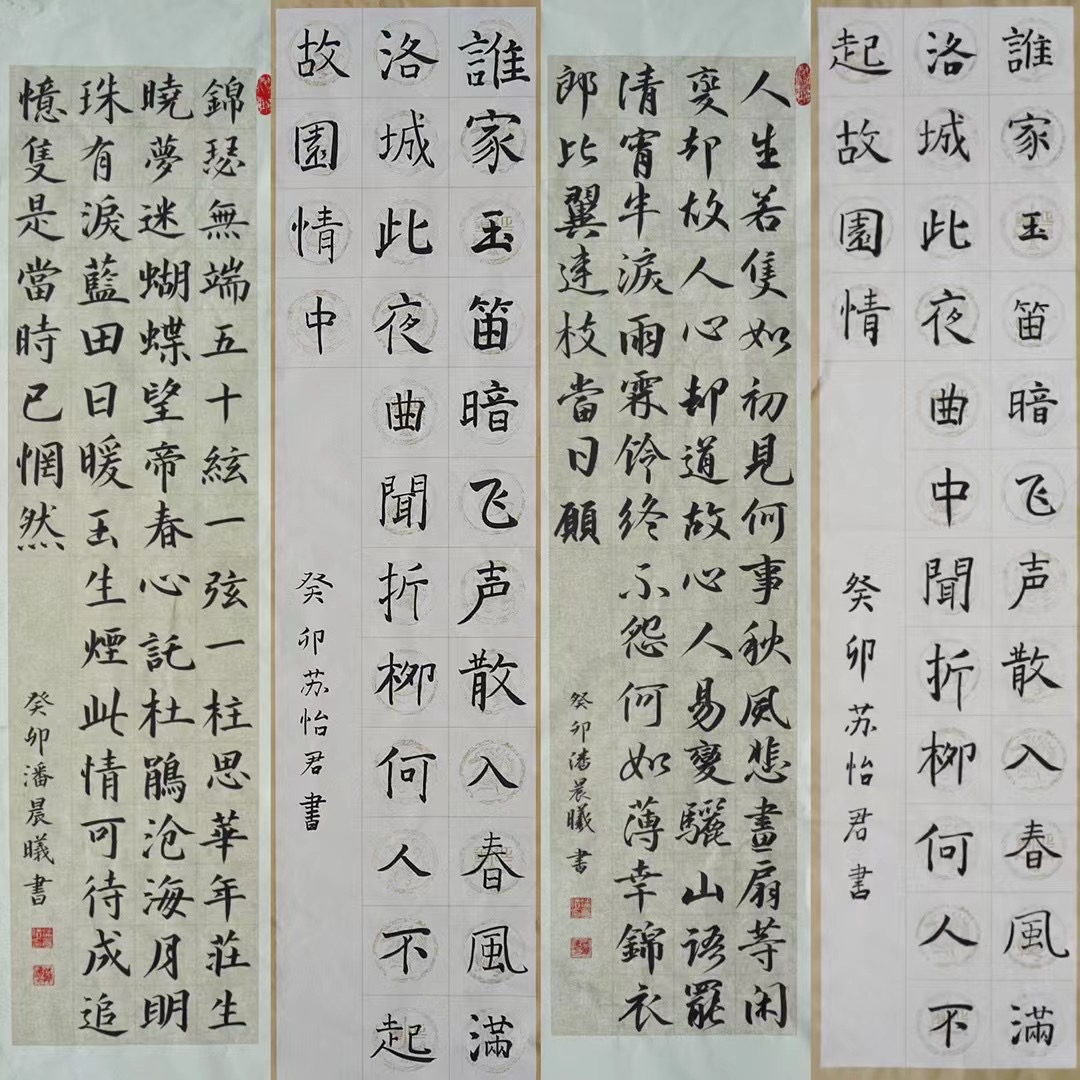 錦瑟無端五十絃一弦一柱思華年莊生
曉夢迷蝴蝶望帝春心託杜鵑沧海月明
珠有淚藍田日暖玉生煙此情可待成追
憶隻是當時已惘然
癸卯潘晨曦書
誰家玉笛暗飞声散入春風滿
洛城此夜曲聞折柳何人不起
故園情中
癸卯苏怡君書
人生若隻如初見何事秋風悲畫扇等闲
變却故人心却道故心人易變驪山语罷
清宵半淚雨霖铃终不怨何如薄幸錦衣
郎比翼連枝當日願
癸卯潘晨曦書
誰家玉笛暗飞声散入春風滿
洛城此夜曲中聞折柳何人不
起故園情
癸卯苏怡君書